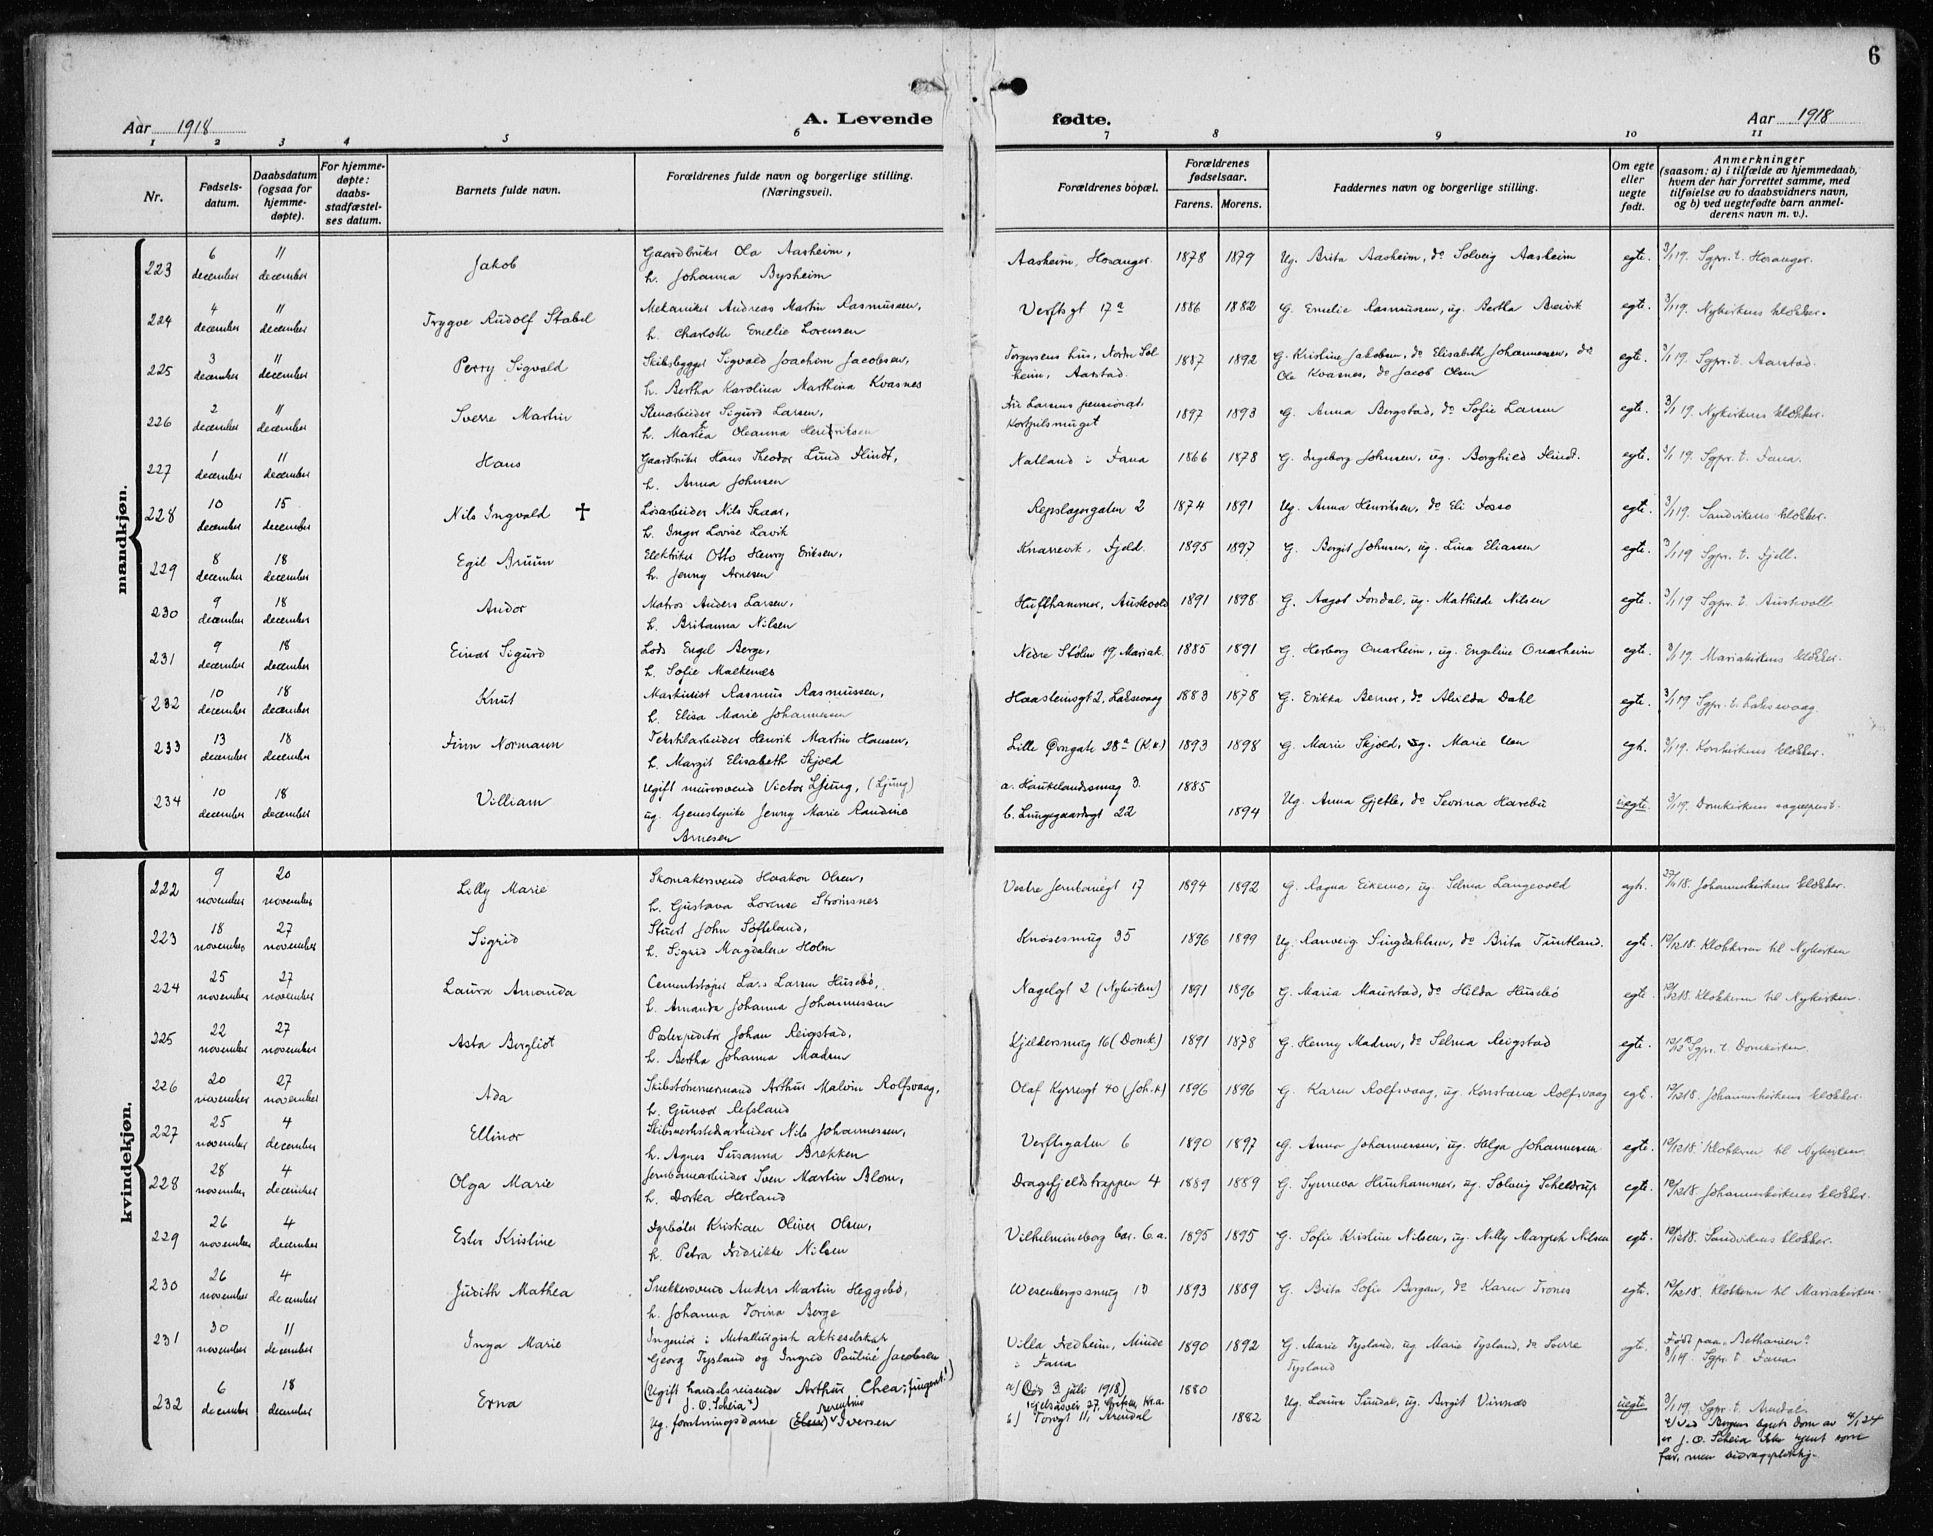 6
Aar 1918
A. Levende
fødte.
Aar 1918
1 2 3 4 5 6 7 8 9 10 11
Nr.
Fødsels-
datum.
Daabsdatum
(ogsaa for
hjemme-
døpte).
For hjemme-
døpte:
daabs-
stadfæstel-
ses datum.
Barnets fulde navn.
Forældrenes fulde navn og borgerlige stilling.
(Næringsvei).
Forældrenes bopæl.
Forældrenes
fødselsaar.
Farens. Morens.
Faddernes navn og borgerlige stilling.
Om egte
eller
uegte
født.
Anmerkninger
(saasom: a) i tilfælde av hjemmedaab,
hvem der har forrettet samme, med
tilføielse av to daabsvidners navn,
og b) ved uegtefødte barn anmel-
derens navn m. v.).
mandkjøn.
223 6 december 11 december Jakob Gaardbruker Ola Aasheim,
h. Johanna Bysheim
Aasheim, Hosanger. 1878 1879 Ug. Brita Aasheim, do Solveig Aasheim egte. 3/1 19. Sgpr. t. Hosanger.
224 4 december 11 december Trygve Rudolf Stabel Mekaniker Andreas Martin Rasmussen,
h. Charlotte Emelie Lorensen
Verftsgt 17a 1886 1882 G. Emelie Rasmussen, ug. Bertha Breivik egte. 3/1 19. Nykirkens klokker.
225 3 december 11 december Perry Sigvald Skibsbygger Sigvald Joachim Jacobsen,
h. Bertha Karolina Marthina Kvasnes
Torgersens hus, Nordre Sol
heim, Aarstad. 1887 1892 G. Kristine Jakobsen, do Elisabeth Johannessen, do
Ole Kvasnes, do Jacob Olsen egte. 3/1 19. Sgpr. t. Aarstad.
226 2 december 11 december Sverre Martin Stenarbeider Sigurd Larsen,
h. Martea Oleanna Henriksen
Larsens pensionat, 1897 1893 G. Anna Bergstad, do Sofie Larsen egte. 3/1 19. Nykirkens klokker.
227 1 december 11 december Hans Gaardbruker Hans Theodor Lund Flindt,
h. Anna Johnsen
Natland i Fana 1866 1878 G. Ingeborg Johnsen, ug. Borghild Flindt. egte. 3/1 19. Sgpr. t. Fana.
228 10 december 15 december Nils Ingvald ✝ Løsarbeider Nils Skaar,
h. Inger Lovise Lavik
Repslagergaten 2 1874 1891 Ug. Anna Henriksen, do Eli Fosso egte. 3/1 19. Sandvikens klokker.
229 8 december 18 december Egil Bruun Elektriker Otto Henry Eriksen,
h. Jenny Arnesen
Knarrevik, Fjeld. 1895 1897 G. Bergit Johnsen, ug. Lina Eliassen egte. 3/1 19 Sgpr. t. Fjell.
230 9 december 18 december Andor Matros Anders Larsen,
h. Britanna Nilsen
Hufthammer, Austevold 1891 1898 G. Aagot Forsdal, ug. Mathilde Nilsen egte. 3/1 19 Sgpr. t. Austevoll
231 9 december 18 december Einar Sigurd Lods Engel Berge,
h. Sofie Malkenes
Nedre Stølen 19, Mariak. 1885 1891 G. Herborg Onarheim, ug. Engeline Onarheim egte. 3/1 19. Mariakirkens klokker.
232 10 december 18 december Knut Maskinist Rasmus Rasmussen,
h. Elisa Marie Johannesen
Haasteinsgt 2, Laksevaag 1883 1878 G. Erikka Berner, do Alvilda Dahl egte. 3/1 19 Sgpr. t. Laksevaag.
233 13 december 18 december Finn Normann Tekstilarbeider Henrik Martin Hansen,
h. Margit Elisabeth Skjold
Lille Øvregate 28a (K.k.) 1893 1898 G. Marie Skjold, ug. Marie Uen egte. 3/1 19. Korskirkens klokker.
234 10 december 18 december Villiam Ugift murersvend Victor Ljung, (Ljung)
ug. Tjenestepike Jenny Marie Randine
Arnesen
a. Haukelandssmug 3. 1885
b. Lungegaardsgt 22 1894 Ug. Anna Gjetle, do Sevrina Harebu uegte. 3/1 19. Domkirkens sogneprest.
kvindekjøn.
222 9 november 20 november Lilly Marie Skomakersvend Haakon Olsen,
h. Gustava Lorense Strømsnes
Vestre Jernbanegt 17 1894 1892 G. Ragna Eikemo, ug. Selma Langevold egte. 27/11 18. Johanneskirkens klokker.
223 18 november 27 november Sigrid Stuert John Søfteland,
h. Sigrid Magdalene Holm
Knøsesmug 35 1896 1899 Ug. Ranveig Singdahlsen, do Brita Tuntland. egte. 12/12 18. Klokkeren til Nykirken
224 25 november 27 november Laura Amanda Cementstøper Lars Larsen Husebø,
h. Amanda Johanna Johannessen
Nagelgt 2 (Nykirken) 1891 1896 G. Maria Maurstad, do Hilda Husebø egte. 12/12 18. Klokkeren til Nykirken.
225 22 november 27 november Asta Bergliot Postexpeditør Johan Reigstad,
h. Bertha Johanna Madsen
Kjeldersmug 16 (Domk.) 1891 1878 G. Henny Madsen, do Selma Reigstad egte. 12/12 18 Sgpr. t. Domkirken.
226 20 november 27 november Ada Skibstømmermand Arthur Malvin Rolfsvaag,
h. Gunvor Refsland
Olaf Kyrresgt 40 (Joh.k) 1896 1896 G. Karen Rolfsvaag, ug. Konstanse Rolfsvaag egte. 12/12 18. Johanneskirkens klokker.
227 25 november 4 december Ellinor Skibsverkstedarbeider Nils Johannessen,
h. Agnes Susanna Brekken
Verftsgaten 6 1890 1897 G. Anna Johannessen, ug. Helga Johannessen egte. 12/12 18. Klokkeren til Nykirken.
228 28 november 4 december Olga Marie Jernbanearbeider Sven Martin Blom,
h. Dortea Herland
Dragefjeldstrappen 4 1889 1889 G. Synneva Hunhammer, ug. Solveig Scheldrup egte. 12/12 18 Johanneskirkens klokker.
229 26 november 4 december Ester Kristine Fyrbøter Kristian Oliver Olsen,
h. Petra Fredrikke Nilsen
Vilhelmineborg bar. 6.a. 1895 1895 G. Sofie Kristine Nilsen, ug. Nilly Margreth Nilsen egte. 12/12 18. Sandvikens klokker.
230 26 november 4 december Judith Mathea Snekkersvend Anders Martin Heggebø,
h. Johanna Torina Berge
Wesenbergssmug 10 1893 1889 G. Brita Sofie Bergan, do Karen Trones egte. 12/12 18. Klokkeren til Mariakirken.
231 30 november 11 december Inga Marie Ingeniør i Metallurgisk aktieselskap
Georg Tysland og Ingrid Pauline Jacobsen
Villa Fredheim, Minde
i Fana 1890 1892 G. Marie Tysland, ug. Marie Tysland, do Sverre
Tysland egte. Født paa "Bethanien".
3/1 19. Sgpr. t. Fana.
232 6 december 18 december Erna (Ugift handelsreisende Arthur Chea,
J. O. Scheia x)
Ug. forretningsdame Iversen
a) (Død 3 juli 1918) 1880
b) Torvgt 11, Arendal 1882 Ug. Laura Sundal, ug. Bergit Vinnes uegte 3/1 19. Sgpr. t. Arendal.
x) Ved Bergens byrets dom av 4/1 24
er J. O. Scheia ikke kjent som
far, men bidragspliktig.